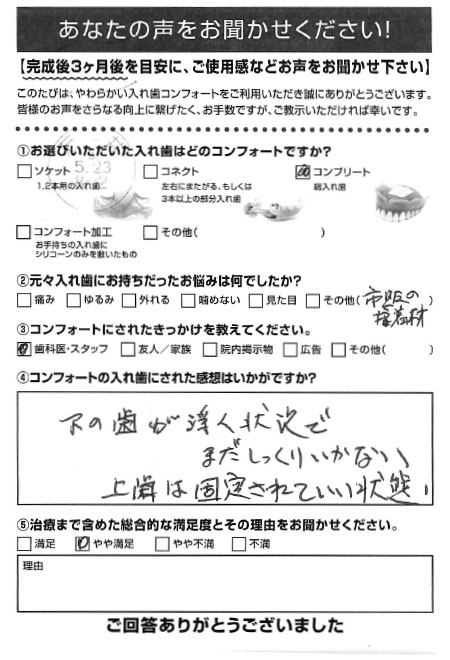 あなたの声をお聞かせください!
【完成後3ヶ月後を目安に、ご使用感などお声をお聞かせ下さい】
このたびは、やわらかい入れ歯コンフォートをご利用いただき誠にありがとうございます。
皆様のお声をさらなる向上に繋げたく、お手数ですが、ご教示いただければ幸いです。
①お選びいただいた入れ歯はどのコンフォートですか?
ソケット
1,2本用の入れ歯
コネクト
左右にまたがる、もしくは
3本以上の部分入れ歯
コンプリート
総入れ歯
5.23
コンフォート加工
お手持ちの入れ歯に
シリコーンのみを敷いたもの
その他( )
②元々入れ歯にお持ちだったお悩みは何でしたか?
痛み ゆるみ 外れる 噛めない 見た目 その他(市販の
接着材)
③コンフォートにされたきっかけを教えてください。
歯科医・スタッフ 友人/家族 院内掲示物 広告 その他( )
④コンフォートの入れ歯にされた感想はいかがですか?
下の歯が浮く状況で
まだしっくりいかない、
上歯は固定されていい状態。
⑤治療まで含めた総合的な満足度とその理由をお聞かせください。
満足 やや満足 やや不満 不満
理由
ご回答ありがとうございました